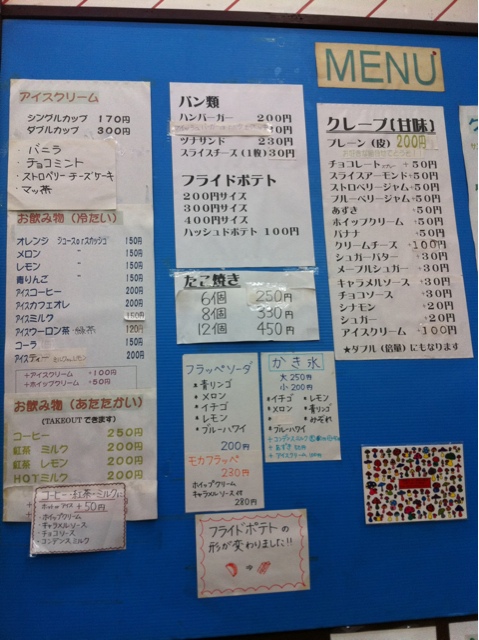 MENU
アイスクリーム
シングルカップ 170円
ダブルカップ 300円
・バニラ
・チョコミント
・ストロベリーチーズケーキ
・マッ茶
お飲み物（冷たい）
オレンジ ジュースorスカッシュ 150円
メロン 〃 150円
レモン 〃 150円
青りんご 〃 150円
アイスコーヒー 200円
アイスカフェオレ 200円
アイスミルク 150円
アイスウーロン茶・緑茶 120円
コーラ 150円
アイスティー 200円
＋アイスクリーム ・100円
＋ホイップクリーム ・50円
お飲み物（あたたかい）
(TAKEOUTできます)
コーヒー 250円
紅茶 ミルク 200円
紅茶 レモン 200円
HOTミルク 200円
コーヒー・紅茶・ミルクに
ホット or アイス ＋50円
・ホイップクリーム
・キャラメルソース
・チョコソース
・コンデンスミルク
パン類
ハンバーガー 200円
ツナサンド 230円
スライスチーズ(1枚)30円
フライドポテト
200円サイズ
300円サイズ
400円サイズ
ハッシュドポテト 100円
たこ焼き
6個 250円
8個 330円
12個 450円
フラッペソーダ
★青リンゴ
★メロン
★イチゴ
★レモン
★ブルーハワイ
200円
モカフラッペ
230円
ホイップクリーム
キャラメルソース付
280円
かき氷
大 250円
小 200円
★イチゴ ★レモン
★メロン ★青リンゴ
★みぞれ
★ブルーハワイ
フライドポテトの
形が変わりました!!
クレープ(甘味)
プレーン（皮）200円
チョコレート ＋50円
スライスアーモンド＋50円
ストロベリージャム＋50円
ブルーベリージャム＋50円
あずき ＋50円
ホイップクリーム ＋50円
バナナ ＋50円
クリームチーズ ＋100円
シュガーバター ＋30円
メープルシュガー ＋30円
キャラメルソース ＋30円
チョコソース ＋30円
シナモン ＋20円
シュガー ＋20円
アイスクリーム ＋100円
★ダブル（倍量）にもなります